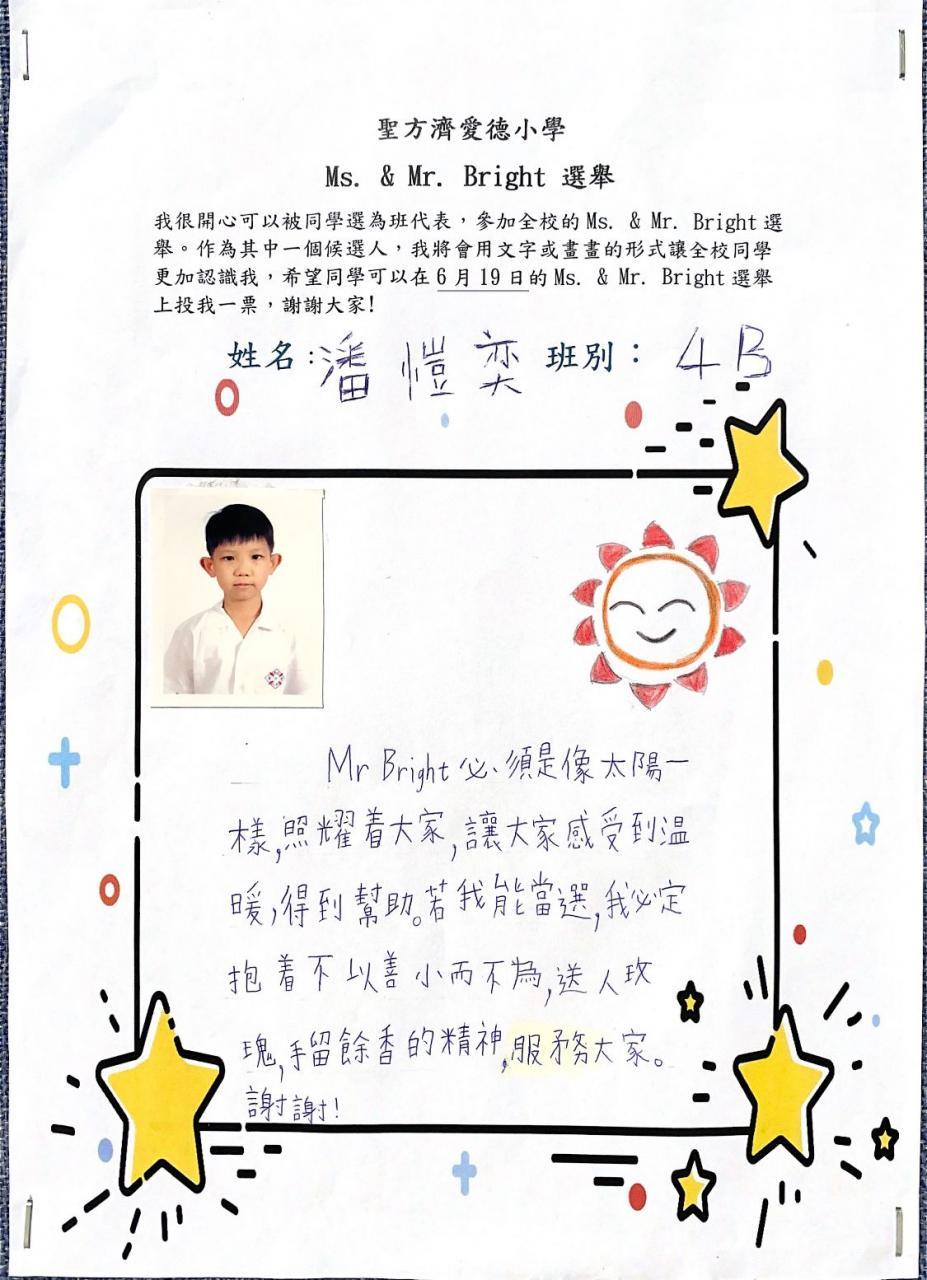 聖方濟愛德小學
Ms. & Mr. Bright 選舉
我很開心可以被同學選為班代表，參加全校的 Ms. & Mr. Bright 選
舉。作為其中一個候選人，我將會用文字或畫畫的形式讓全校同學
更加認識我，希望同學可以在 6 月 19 日的 Ms. & Mr. Bright 選舉
上投我一票，謝謝大家!
姓名：潘愷奕 班別： 4B
Mr Bright 必須是像太陽一
樣,照耀着大家,讓大家感受到溫
暖,得到幫助。若我能當選,我必定
抱着不以善小而不為,送人玫
瑰,手留餘香的精神,服務大家。
謝謝!